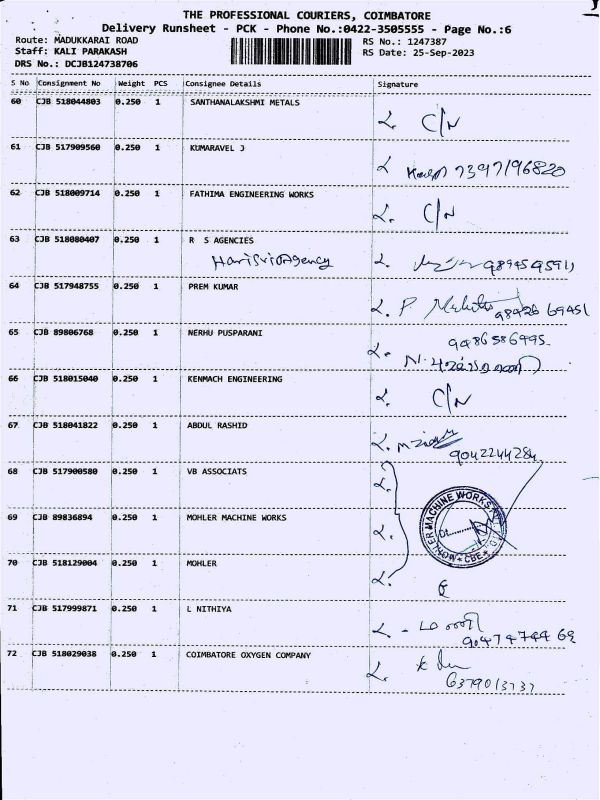 THE PROFESSIONAL COURIERS, COIMBATORE
Delivery Runsheet - PCK - Phone No.:0422-3505555 - Page No.:6
Route: MADUKKARAI ROAD
RS No.: 1247387
Staff: KALI PARAKASH
RS Date: 25-Sep-2023
DRS No.: DCJB124738706
S No Consignment No Weight PCS Consignee Details Signature
60 CJB 518044803 0.250 1 SANTHANALAKSHMI METALS
C/N
61 CJB 517909560 0.250 1 KUMARAVEL J
7397196820
62 CJB 518009714 0.250 1 FATHIMA ENGINEERING WORKS
C/N
63 CJB 518080407 0.250 1 R S AGENCIES
HariSriAgency
64 CJB 517948755 0.250 1 PREM KUMAR
P 98426 69451
65 CJB 89806768 0.250 1 NERHU PUSPARANI
9486586495
N.
66 CJB 518015040 0.250 1 KENMACH ENGINEERING
C/N
67 CJB 518041822 0.250 1 ABDUL RASHID
9042244284
68 CJB 517900580 0.250 1 VB ASSOCIATS
69 CJB 89836894 0.250 1 MOHLER MACHINE WORKS
MOHLER MACHINE WORKS
CBE
70 CJB 518129004 0.250 1 MOHLER
71 CJB 517999871 0.250 1 L NITHIYA
9047474469
72 CJB 518029038 0.250 1 COIMBATORE OXYGEN COMPANY
6379013737